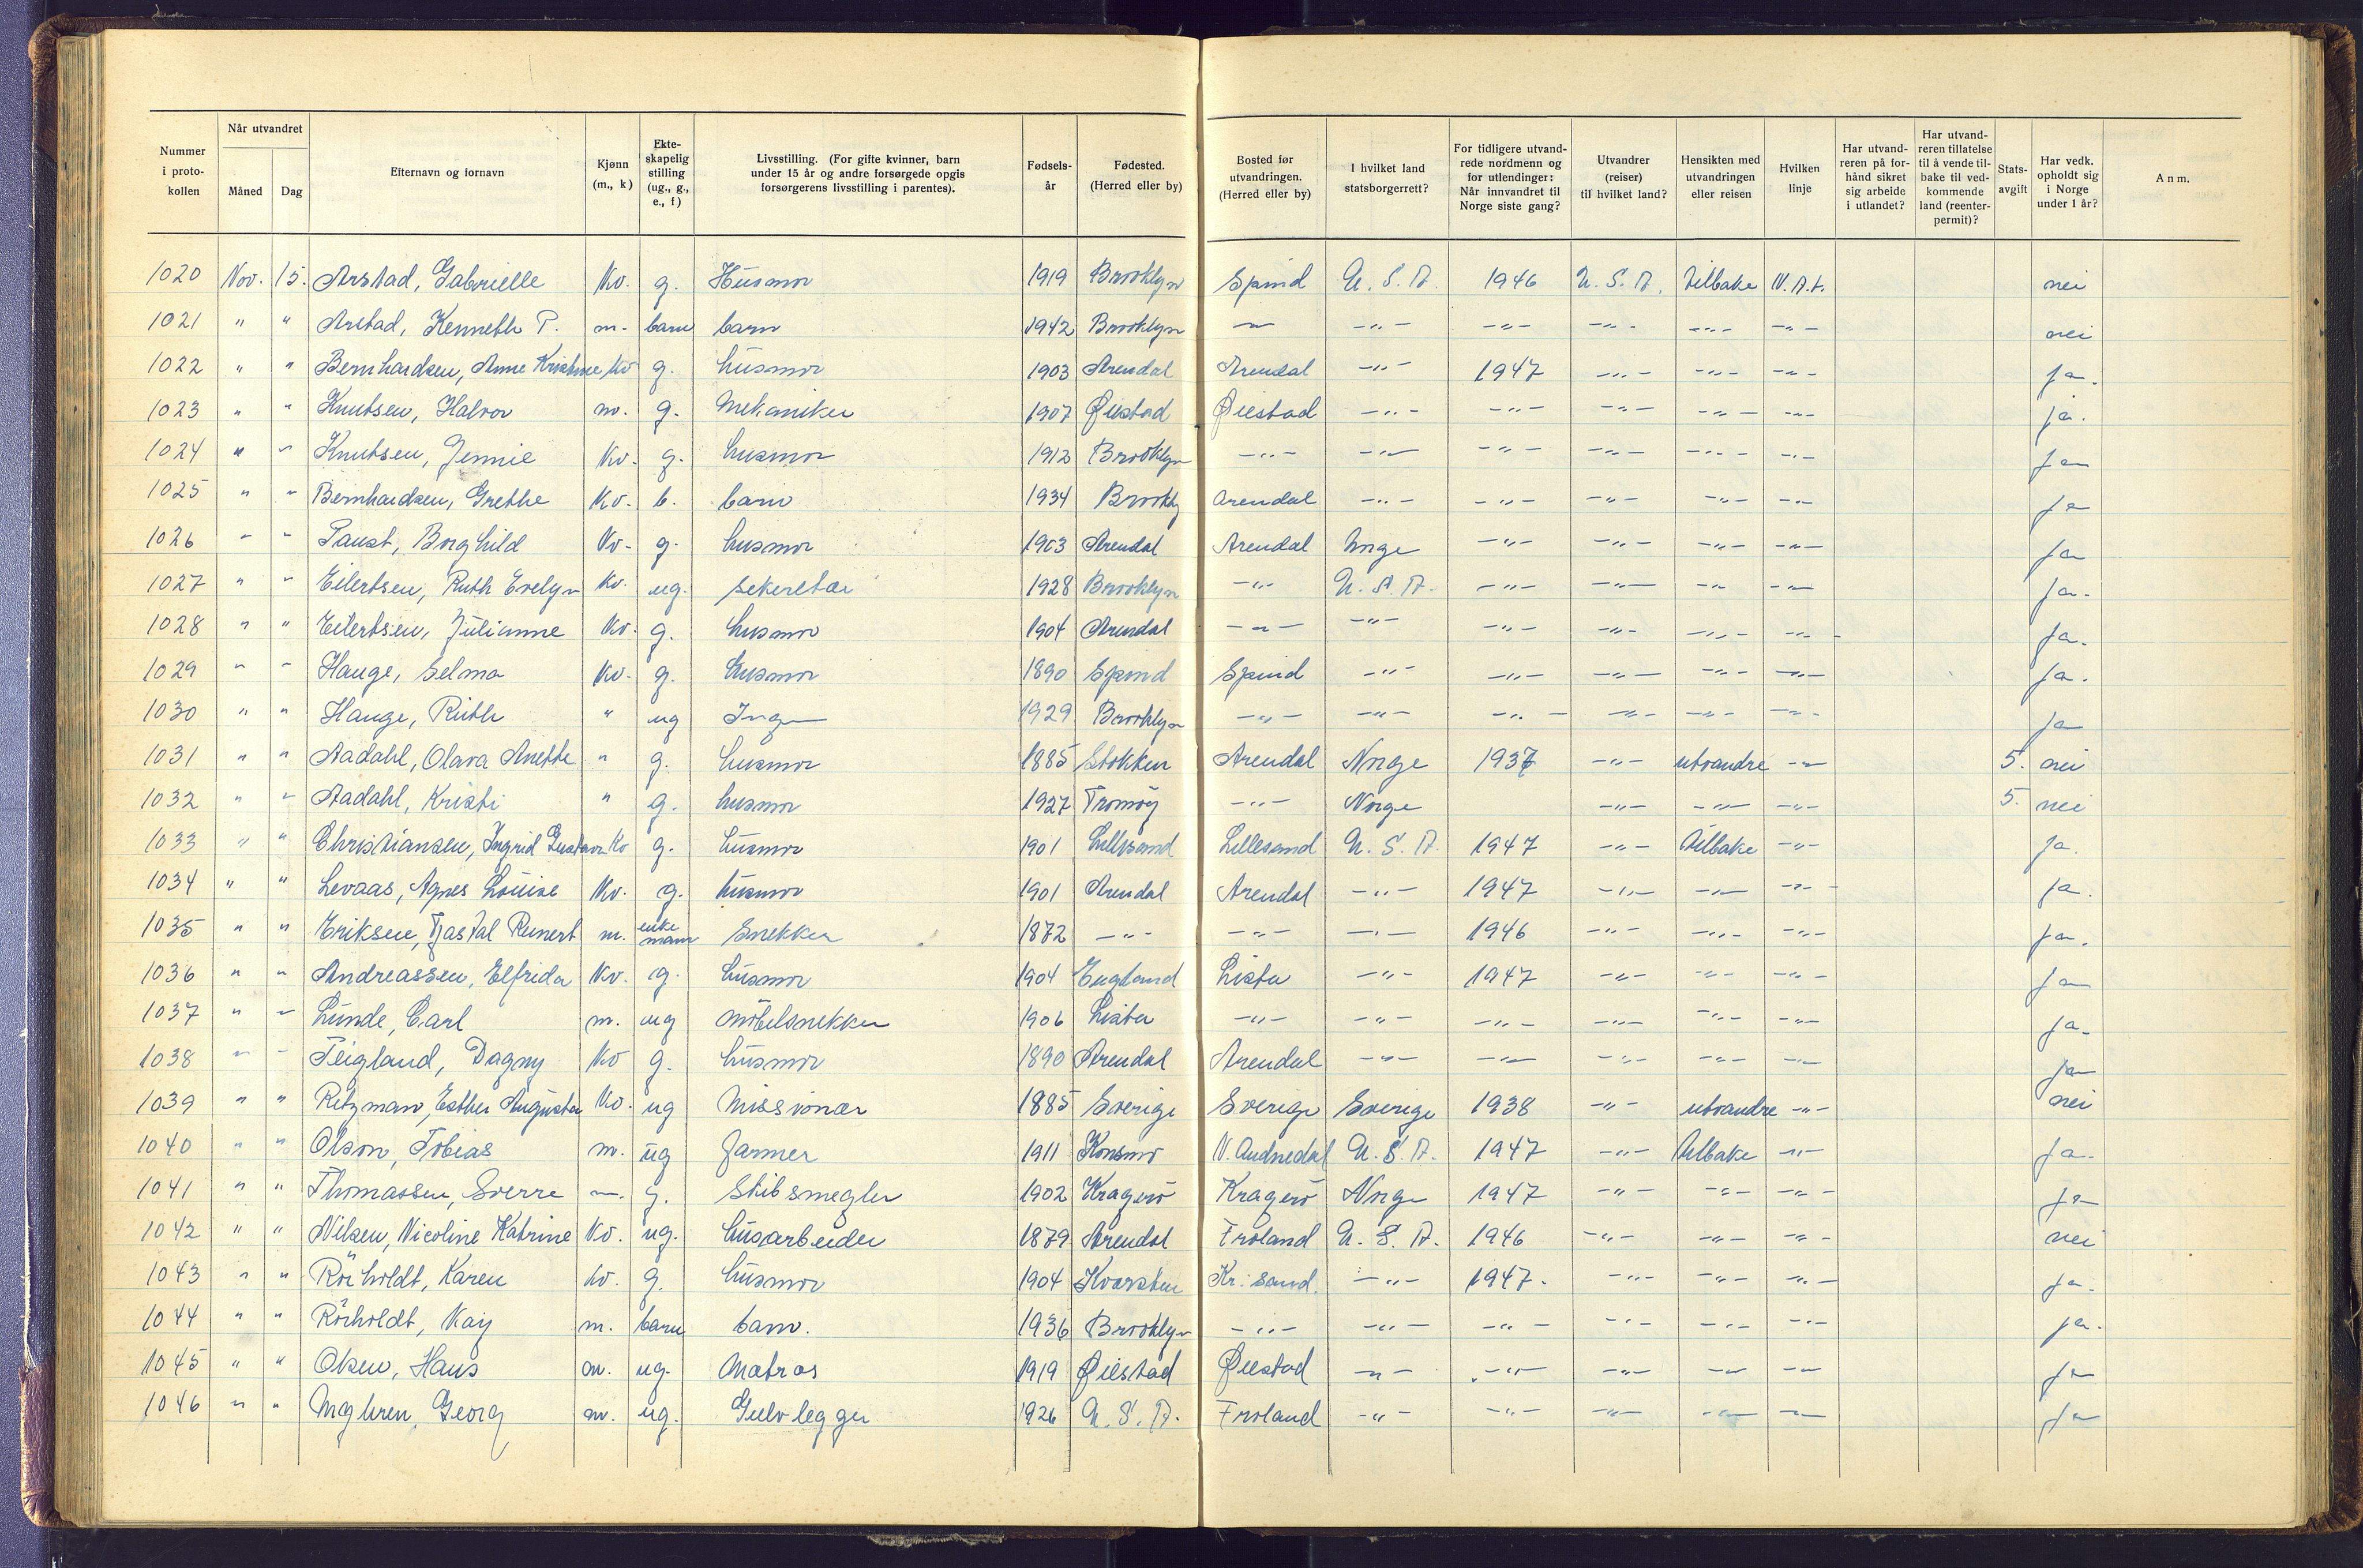 Nummer i proto-kollen | Når utvandret Måned | Dag | Efternavn og fornavn | Kjønn (m., k) | Ekte-skapelig stilling (ug., g., e., f) | Livsstilling. (For gifte kvinner, barn under 15 år og andre forsørgede opgis forsørgerens livsstilling i parentes). | Fødsels-år | Fødested. (Herred eller by) | Bosted før utvandringen. (Herred eller by) | I hvilket land statsborgerrett? | For tidligere utvand-rede nordmenn og for utlendinger: Når innvandret til Norge siste gang? | Utvandrer (reiser) til hvilket land? | Hensikten med utvandringen eller reisen | Hvilken linje | Har utvand-reren på for-hånd sikret sig arbeide i utlandet? | Har utvand-reren tillatelse til å vende til-bake til ved-kommende land (reenter-permit)? | Stats-avgift | Har vedk. opholdt sig i Norge under 1 år? | Anm.
1020 Nov. 15. Arstad, Gabrielle Kv. g. Husmor 1919 Brooklyn Spind U.S.A. 1946 U.S.A. tilbake N.A.L. nei
1021 " " Arstad, Kenneth P. m. barn barn 1942 Brooklyn -"- -"- -"- -"- -"- -"- nei
1022 " " Bernhardsen, Anne Kristine Kv g. husmor 1903 Arendal Arendal -"- 1947 -"- -"- -"- ja.
1023 " " Knutsen, Halvor m. g. Mekaniker 1907 Øiestad Øiestad -"- -"- -"- -"- -"- ja.
1024 " " Knutsen, Jennie Kv. g. husmor 1912 Brooklyn -"- -"- -"- -"- -"- -"- ja
1025 " " Bernhardsen, Grethe Kv. b. barn 1934 Brookly Arendal -"- -"- -"- -"- -"- ja
1026 " " Paust, Borghild Kv. g. husmor 1903 Arendal Arendal Norge -"- -"- -"- -"- ja
1027 " " Eilertsen, Ruth Evelyn Kv. ug. sekretær 1928 Brooklyn -"- U.S.A. -"- -"- -"- -"- ja.
1028 " " Eilertsen, Julianne Kv. g. husmor 1904 Arendal -"- -"- -"- -"- -"- -"- ja.
1029 " " Hauge, Selma Kv. g. husmor 1890 Spind Spind -"- -"- -"- -"- -"- ja.
1030 " " Hauge, Ruth " ug Ingen 1929 Brooklyn -"- -"- -"- -"- -"- -"- ja
1031 " " Aadahl, Olava Anette " g. husmor 1885 Stokken Arendal Norge 1937 -"- utvandre -"- 5. nei
1032 " " Aadahl, Kristi " g. husmor 1927 Tromøy -"- Norge -"- -"- -"- 5. nei
1033 " " Christiansen, Ingrid Gustava Kv g. husmor 1901 Lillesand Lillesand U.S.A. 1947 -"- tilbake -"- ja.
1034 " " Levaas, Agnes Louise Kv. g. husmor 1901 Arendal Arendal -"- 1947 -"- -"- -"- ja.
1035 " " Eriksen, Tjøstal Reinert m. enke mann Snekker 1872 -"- -"- -"- 1946 -"- -"- -"- ja.
1036 " " Andreassen, Elfrida Kv. g. husmor 1904 England Lista -"- 1947 -"- -"- -"- ja
1037 " " Lunde, Carl m. ug møbelsnekker 1906 Lista -"- -"- -"- -"- -"- -"- ja.
1038 " " Teigland, Dagny Kv g. husmor 1890 Arendal Arendal -"- -"- -"- -"- -"- ja
1039 " " Retzman, Esther Augusta Kv. ug Missionær 1885 Sverige Sverige Sverige 1938 -"- utvandre -"- nei
1040 " " Olson, Tobias m. ug Farmer 1911 Konsmo N. Audnedal U.S.A. 1947 -"- tilbake -"- ja.
1041 " " Thomassen, Sverre m. g. Skibsmegler 1902 Kragerø Kragerø Norge 1947 -"- -"- -"- ja
1042 " " Nilsen, Nicoline Katrine Kv. ug. husarbeider 1879 Arendal Froland U.S.A. 1946 -"- -"- -"- nei
1043 " " Rørholdt, Karen Kv. g. husmor 1904 Kvarstein Kr: sand. -"- 1947. -"- -"- -"- ja.
1044 " " Rørholdt, Kay m. barn barn. 1936 Brooklyn -"- -"- -"- -"- -"- -"- ja.
1045 " " Olsen, Hans m. ug. Matros 1919 Øiestad Øiestad -"- -"- -"- -"- -"- ja
1046 " " Myhren, Georg m. ug. Gulvlegger 1926 U.S.A. Froland -"- -"- -"- -"- -"- ja